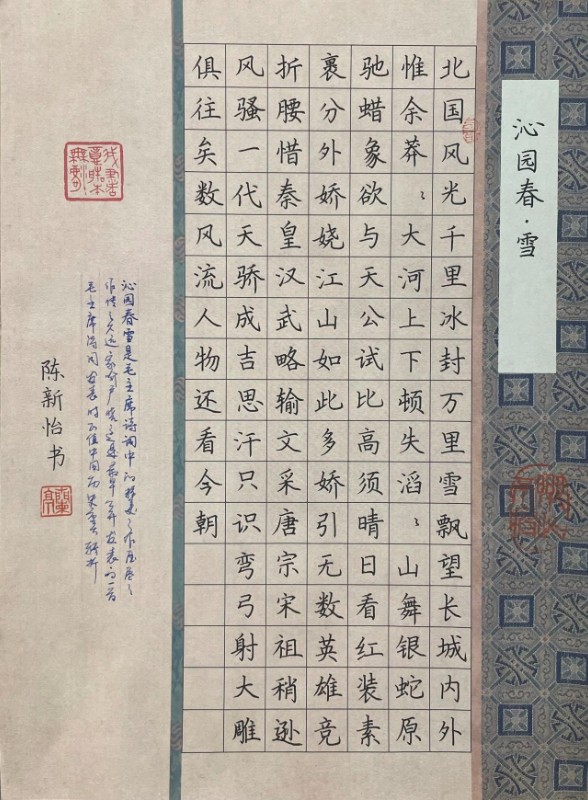 沁园春·雪
北国风光千里冰封万里雪飘望长城内外
惟余莽〻大河上下顿失滔〻山舞银蛇原
驰蜡象欲与天公试比高须晴日看红装素
裹分外娇娆江山如此多娇引无数英雄竞
折腰惜秦皇汉武略输文采唐宗宋祖稍逊
风骚一代天骄成吉思汗只识弯弓射大雕
俱往矣数风流人物还看今朝
沁园春雪是毛主席诗词中的
发表的一首
毛主席诗词发表时
陈新怡书